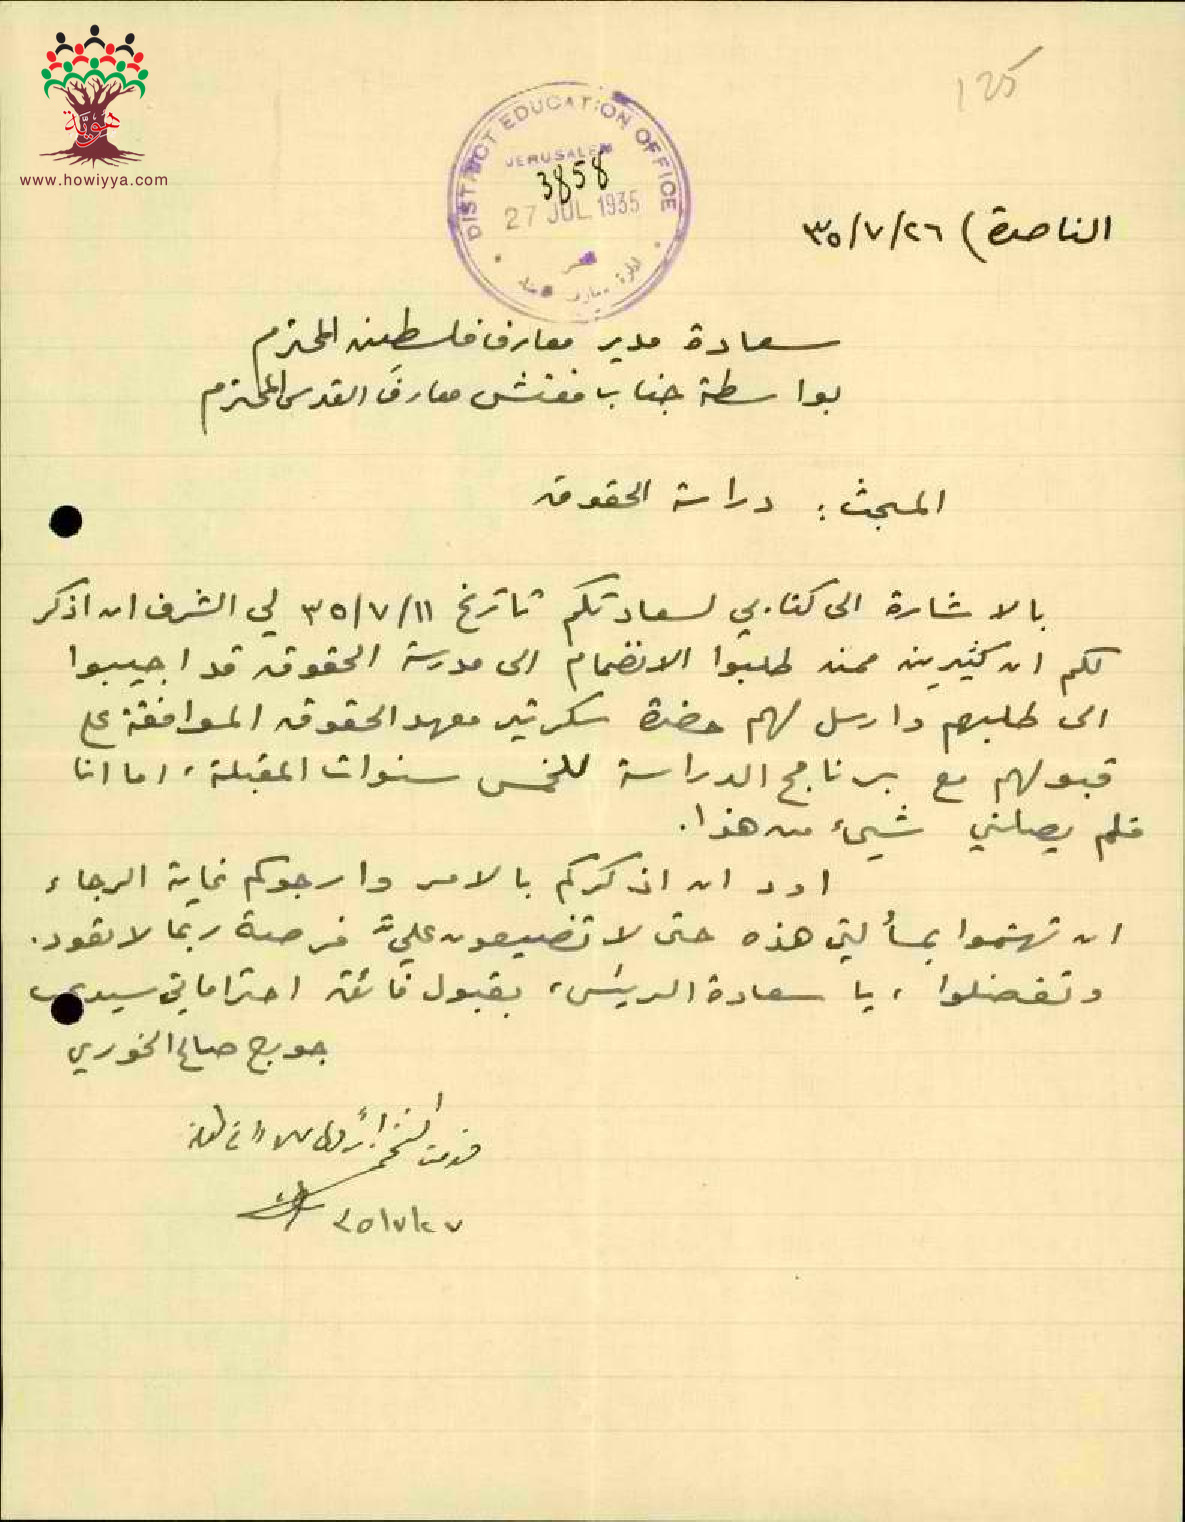 هوية
www.howiyya.com
125
DISTRICT EDUCATION OFFICE
JERUSALEM
3858
27 JUL 1935
الناصرة ) ٢٦/٧/٣٥
سعادة مدير معارف فلسطين المحترم
بواسطة جناب مفتش معارف القدس المحترم
المبحث : دراسة الحقوق
بالاشارة الى كتابي لسعادتكم تاريخ ١١/٧/٣٥ لي الشرف ان اذكر
لكم ان كثيرين ممن طلبوا الانضمام الى مدرسة الحقوق قد اجيبوا
الى طلبهم وارسل لهم حضرة سكرتير معهد الحقوق الموافقة على
قبولهم مع برنامج الدراسة للخمس سنوات المقبلة ، اما انا
فلم يصلني شيىء من هذا .
اود ان اذكركم بالامر وارجوكم غاية الرجاء
ان تهتموا بمسألتي هذه حتى لا تضيعون عليّ فرصة ربما لا تعود .
وتفضلوا ، يا سعادة الريئس ، بقبول فائق احتراماتي سيدي
جورج صالح الخوري
٣٥/٧/٢٧